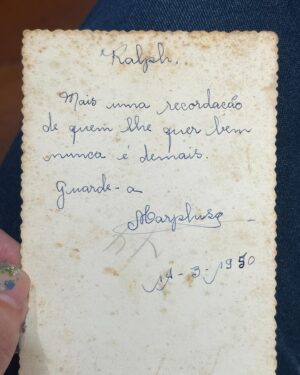 Ralph.
Mais uma recordação
de quem lhe quer bem
nunca é demais.
Guarde-a
14-3-1950